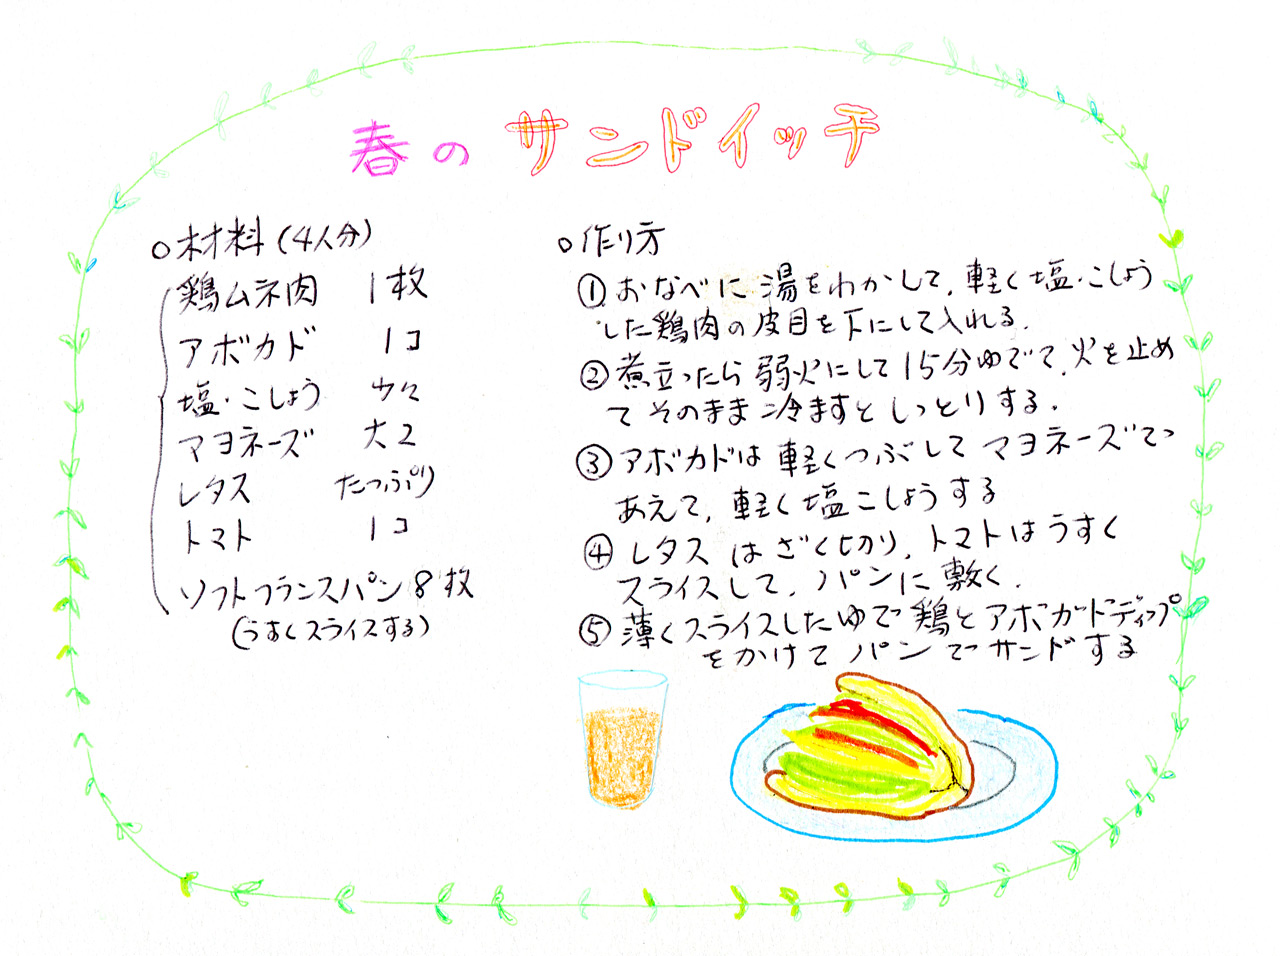 春のサンドイッチ
○材料(4人分)
鶏ムネ肉 1枚
アボカド 1コ
塩・こしょう 少々
マヨネーズ 大2
レタス たっぷり
トマト 1コ
ソフトフランスパン 8枚
(うすくスライスする)
○作り方
①おなべに湯をわかして、軽く塩・こしょう
した鶏肉の皮目を下にして入れる。
②煮立ったら弱火にして15分ゆでて、火を止め
てそのまま冷ますとしっとりする。
③アボカドは軽くつぶしてマヨネーズで
あえて、軽く塩こしょうする
④レタスはざく切り、トマトはうすく
スライスして、パンに敷く。
⑤薄くスライスしたゆで鶏とアボガドディップ
をかけてパンでサンドする